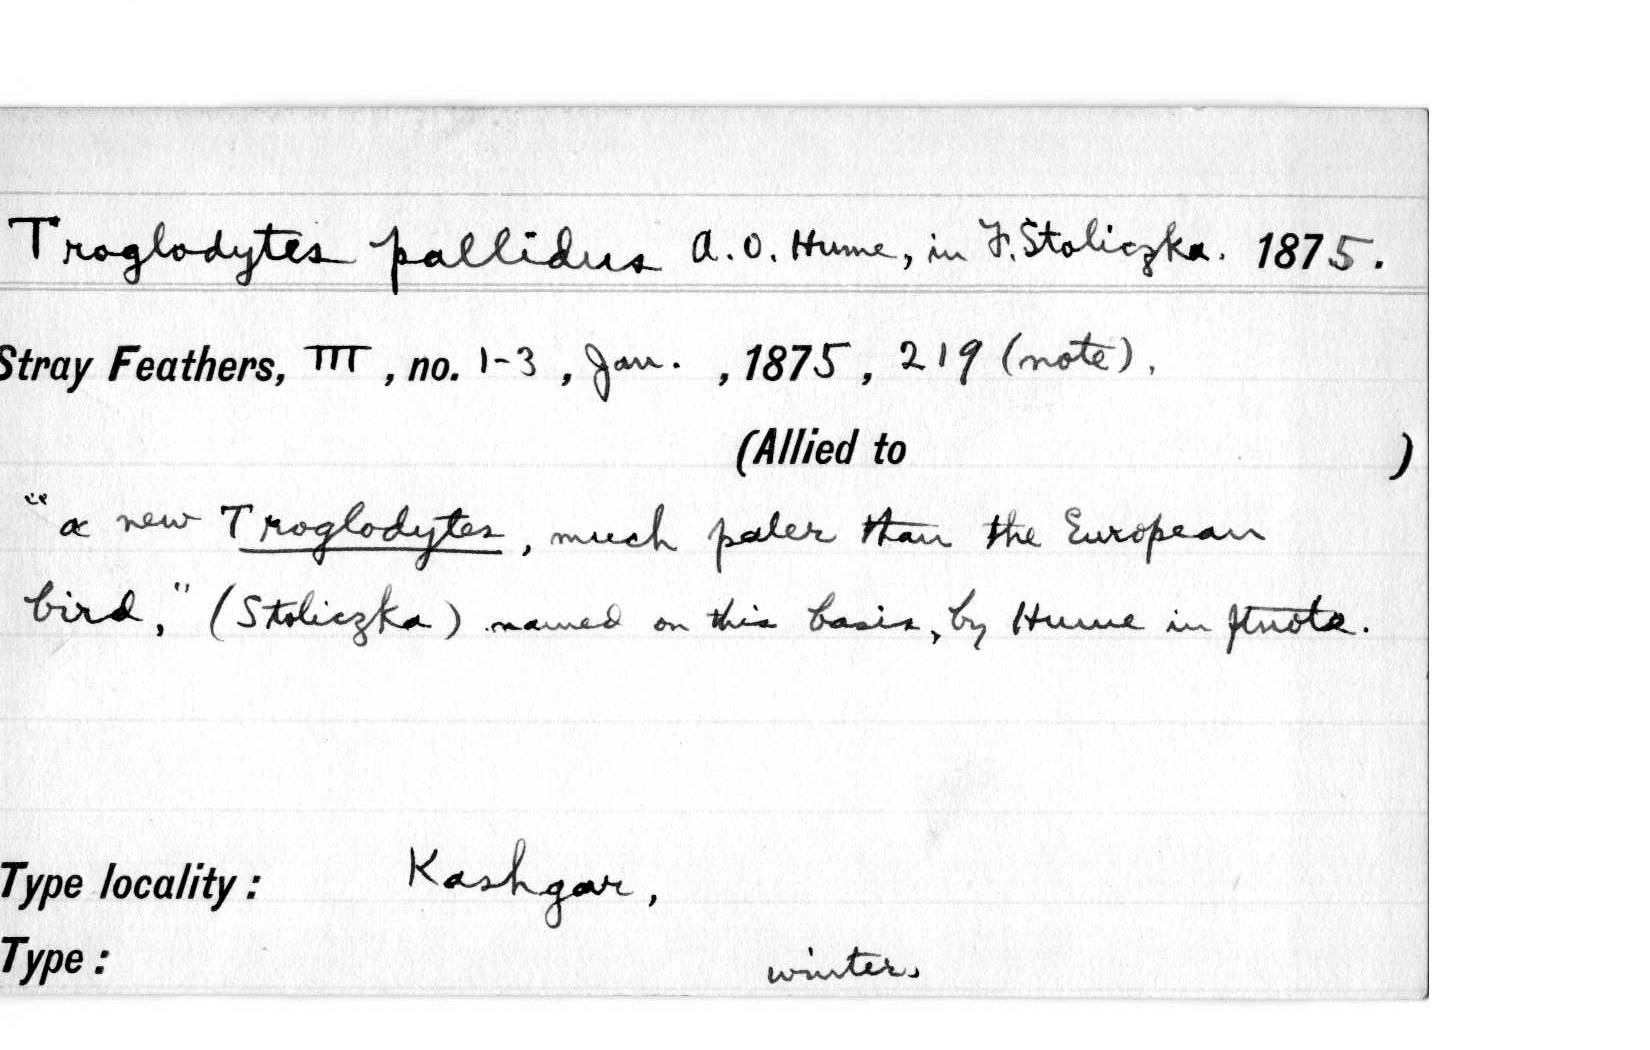 Troglodytes pallidus A. O. Hume, in F. Stoliczka. 1875.
Stray Feathers, III, no. 1-3, Jan. , 1875, 219 (note).
(Allied to )
"a new Troglodytes, much paler than the European
bird," (Stoliczka) named on this basis, by Hume in ftnote.
Type locality: Kashgar,
Type: winter.